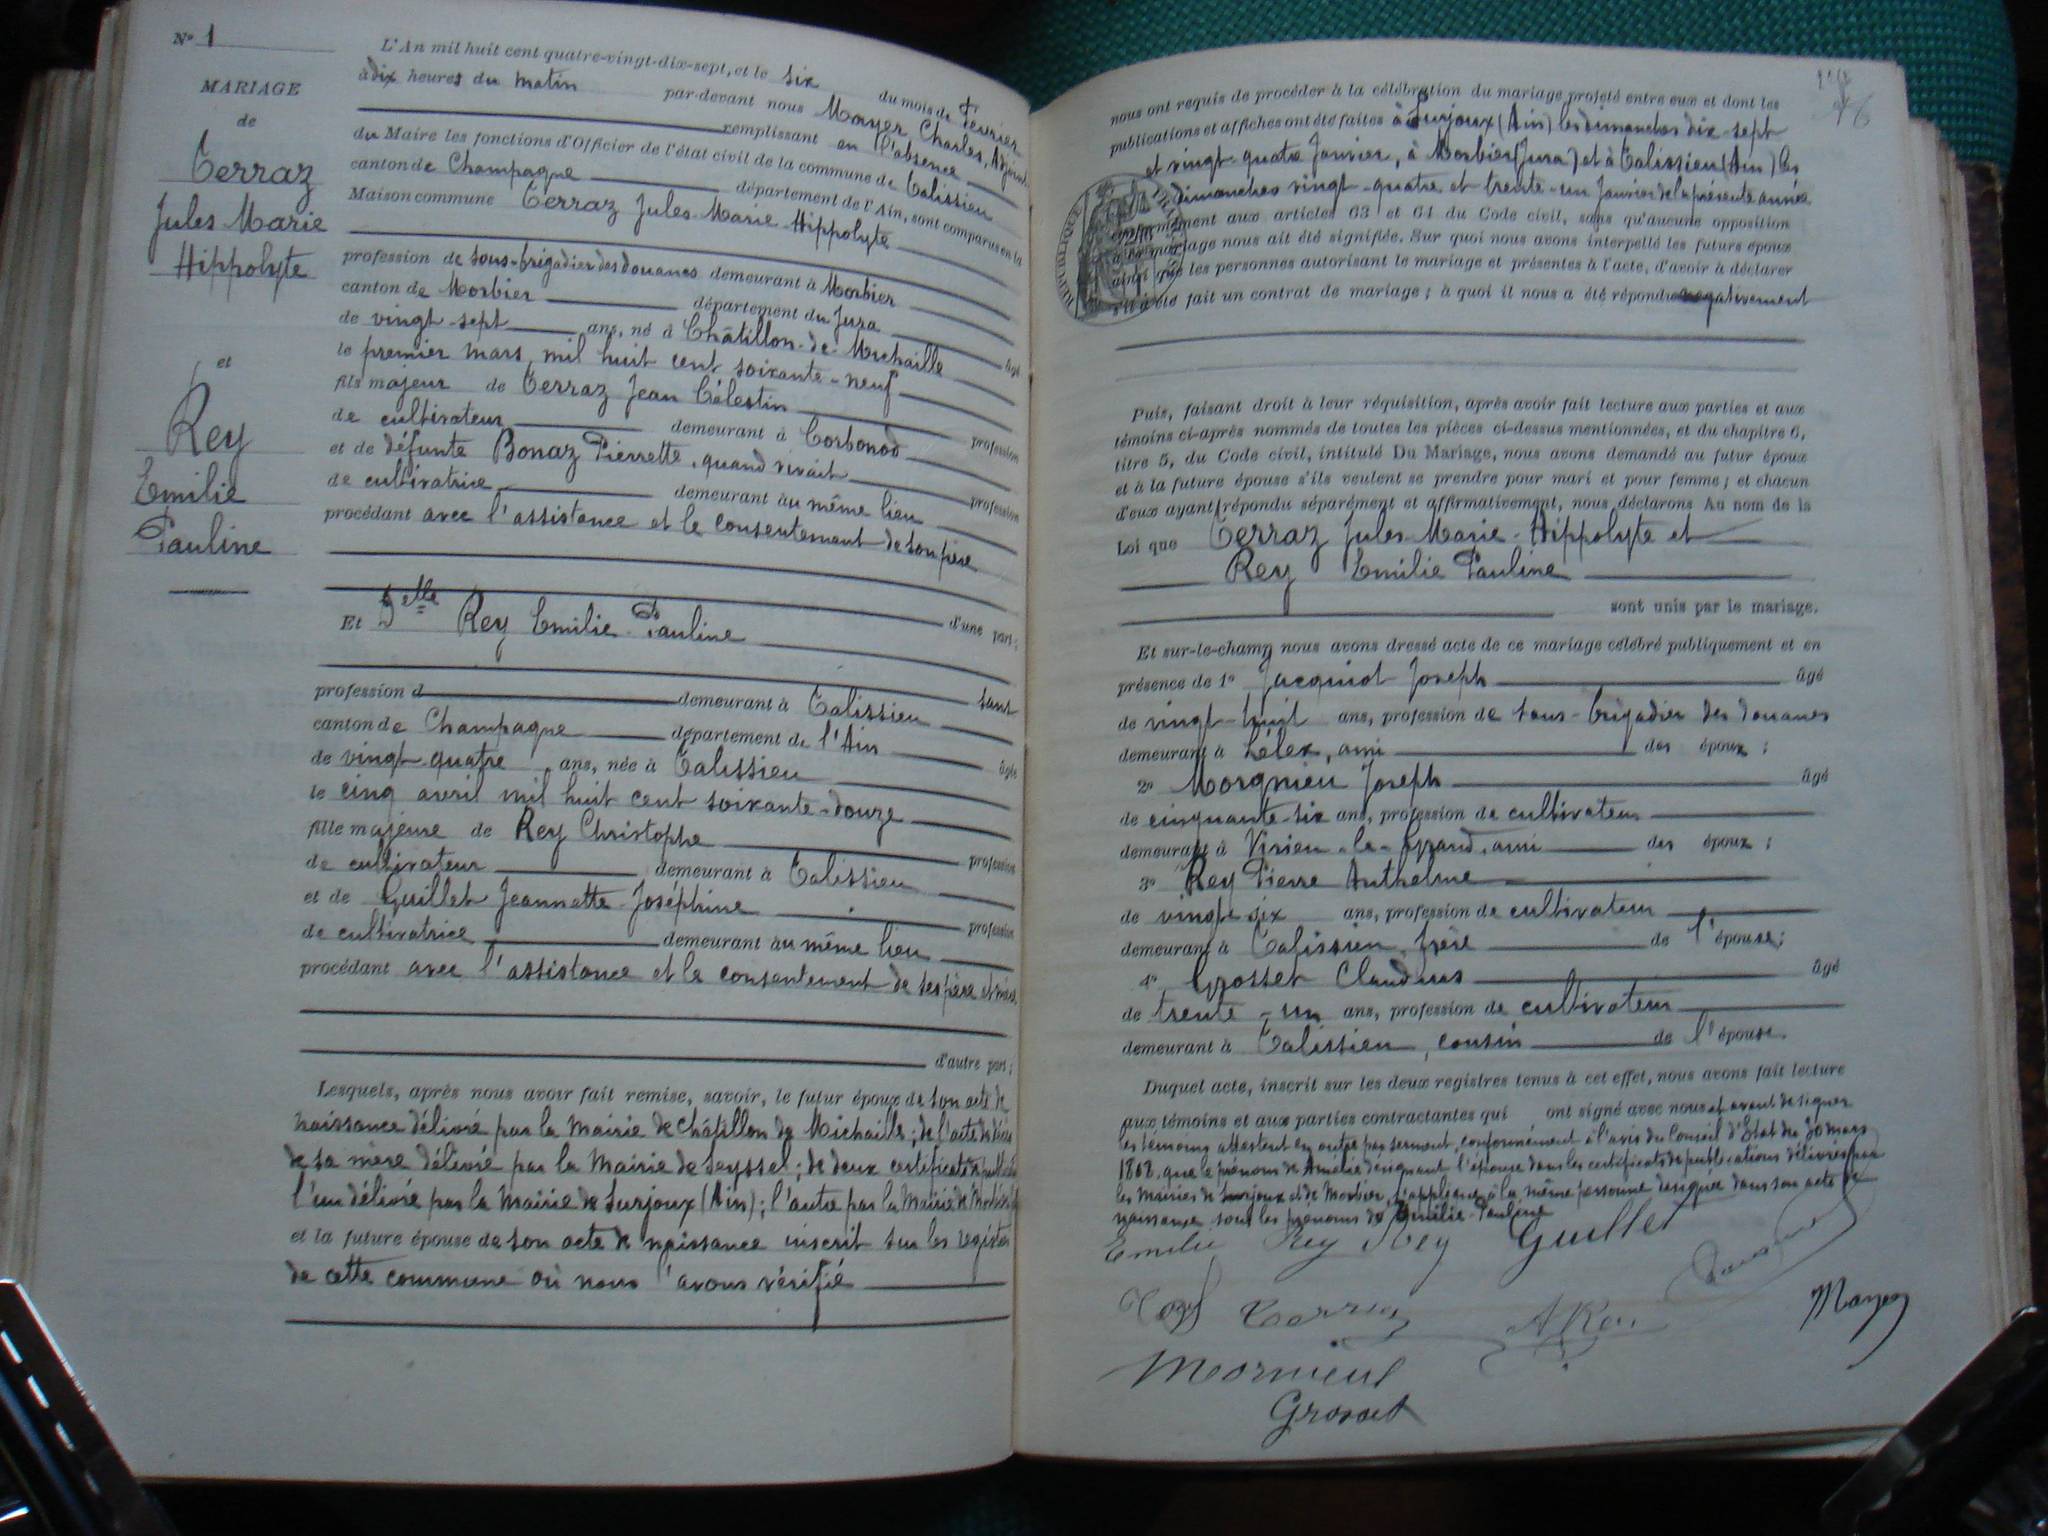 N° 1
MARIAGE
de
Terraz
Jules Marie
Hippolyte
et
Rey
Emilie
Pauline
L'An mil huit cent quatre-vingt-dix-sept, et le six du mois de Février
à dix heures du matin par-devant nous Mayer Charles, Adjoint
remplissant en l'absence
du Maire les fonctions d'Officier de l'état civil de la commune de Talissieu
canton de Champagne département de l'Ain, sont comparus en la
Maison commune Terraz Jules-Marie-Hippolyte
profession de sous-brigadier des douanes demeurant à Morbier
canton de Morbier département du Jura âgé
de vingt-sept ans, né à Châtillon-de-Michaille
le premier mars mil huit cent soixante-neuf
fils majeur de Terraz Jean Célestin profession
de cultivateur demeurant à Corbonod
et de défunte Bonaz Pierrette, quand vivait profession
de cultivatrice demeurant au même lieu
procédant avec l'assistance et le consentement de son père
d'une part;
Et Delle Rey Emilie-Pauline
sans
profession d demeurant à Talissieu
canton de Champagne département de l'Ain âgée
de vingt-quatre ans, née à Talissieu
le cinq avril mil huit cent soixante-douze
fille majeure de Rey Christophe profession
de cultivateur demeurant à Talissieu
et de Guillet Jeannette-Joséphine profession
de cultivatrice demeurant au même lieu
procédant avec l'assistance et le consentement de ses père et mère
d'autre part;
Lesquels, après nous avoir fait remise, savoir, le futur époux de son acte de
naissance délivré par la Mairie de Châtillon de Michaille; de l'acte de décès
de sa mère délivré par la Mairie de Seyssel; de deux certificats de publications
l'un délivré par la Mairie de Surjoux (Ain); l'autre par la Mairie de Morbier
et la future épouse de son acte de naissance inscrit sur les registres
de cette commune où nous l'avons vérifié
nous ont requis de procéder à la célébration du mariage projeté entre eux et dont les
publications et affiches ont été faites à Surjoux (Ain) les dimanches dix-sept
et vingt-quatre Janvier, à Morbier (Jura) et à Talissieu (Ain) les
dimanches vingt-quatre et trente-un Janvier de la présente année
conformément aux articles 63 et 64 du Code civil, sans qu'aucune opposition
à ce mariage nous ait été signifiée. Sur quoi nous avons interpellé les futurs époux
ainsi que les personnes autorisant le mariage et présentes à l'acte, d'avoir à déclarer
s'il a été fait un contrat de mariage; à quoi il nous a été répondu négativement
Puis, faisant droit à leur réquisition, après avoir fait lecture aux parties et aux
témoins ci-après nommés de toutes les pièces ci-dessus mentionnées, et du chapitre 6,
titre 5, du Code civil, intitulé Du Mariage, nous avons demandé au futur époux
et à la future épouse s'ils veulent se prendre pour mari et pour femme; et chacun
d'eux ayant répondu séparément et affirmativement, nous déclarons Au nom de la
Loi que Terraz Jules-Marie-Hippolyte et
Rey Emilie Pauline
sont unis par le mariage.
Et sur-le-champ nous avons dressé acte de ce mariage célébré publiquement et en
présence de 1° Jacquiot Joseph âgé
de vingt-huit ans, profession de sous-brigadier des douanes
demeurant à Lélex, ami des époux;
2° Morgnieu Joseph âgé
de cinquante-six ans, profession de cultivateur
demeurant à Virieu-le-Grand, ami des époux;
3° Rey Pierre Anthelme
de vingt-six ans, profession de cultivateur
demeurant à Talissieu, frère de l'épouse;
4° Grosset Claudius âgé
de trente-un ans, profession de cultivateur
demeurant à Talissieu, cousin de l'épouse.
Duquel acte, inscrit sur les deux registres tenus à cet effet, nous avons fait lecture
aux témoins et aux parties contractantes qui ont signé avec nous et avant de signer
les témoins attestent en outre par serment, conformément à l'avis du Conseil d'Etat du 30 mars
1808, que le prénom de Amélie désignant l'épouse dans les certificats de publications délivrés par
les Mairies de Surjoux et de Morbier, s'applique à la même personne désignée dans son acte de
naissance sous les prénoms de Emilie-Pauline
Emilie Rey Rey Guillet
Terraz A Rey Mayer
Mornieux
Grosset